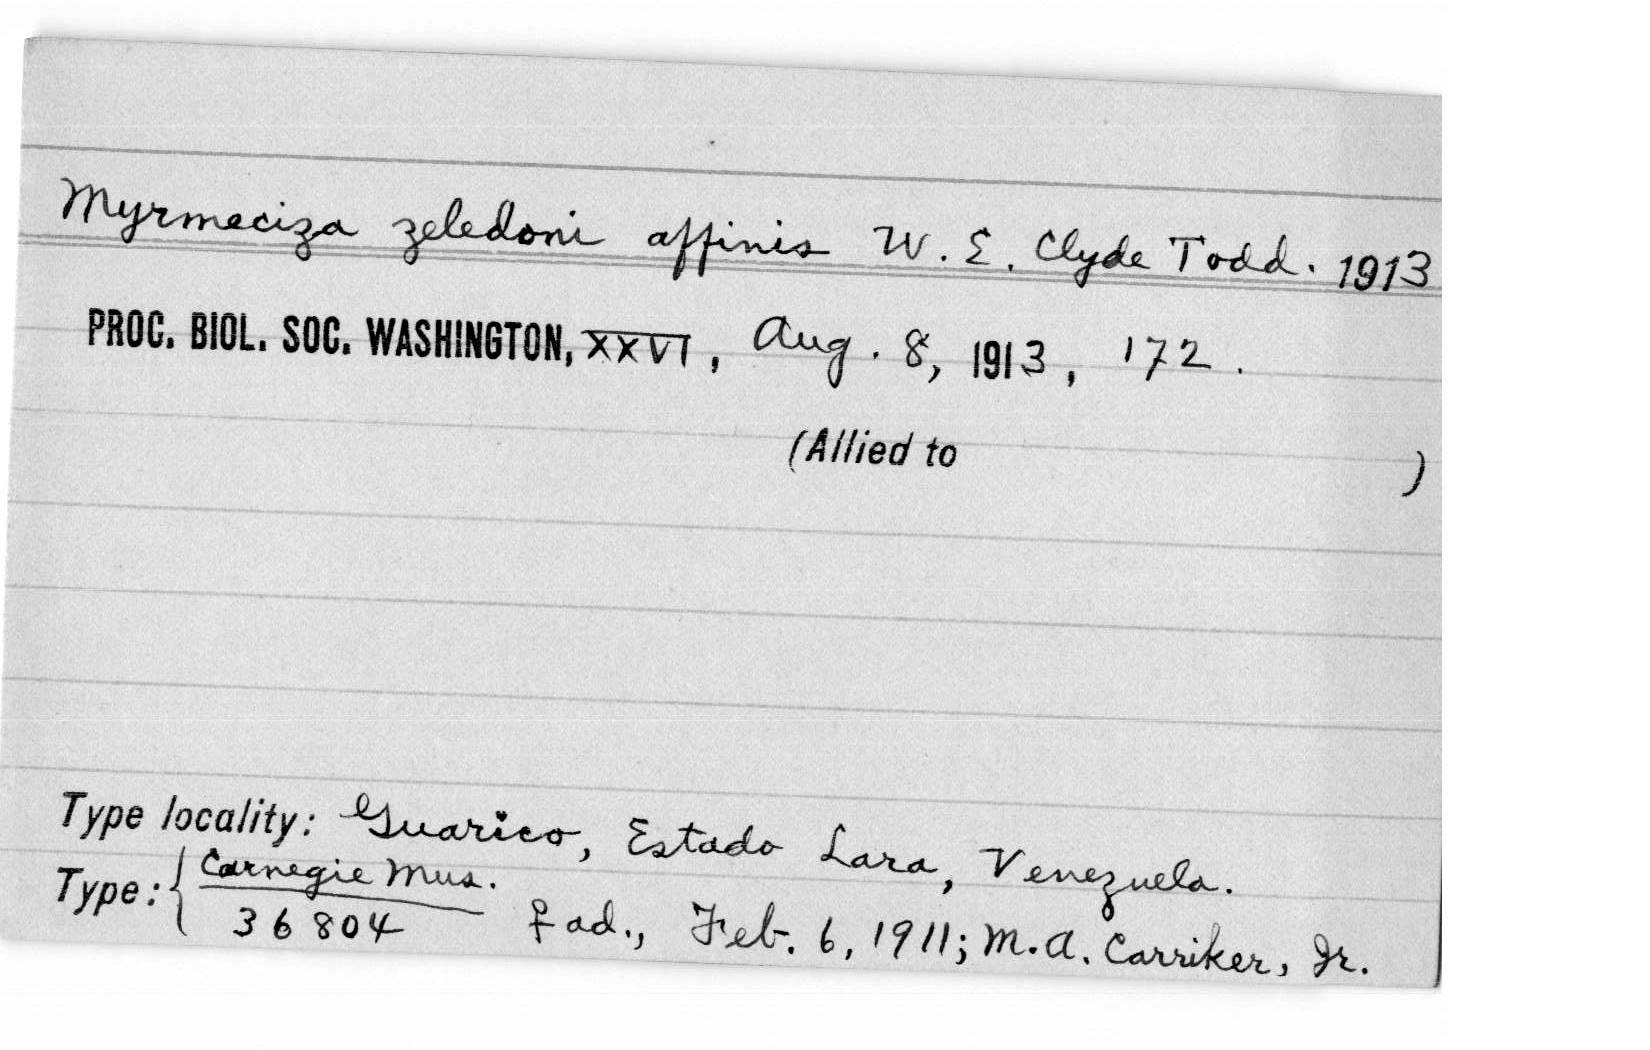 Myrmeciza zeledoni affinis W. E. Clyde Todd. 1913
PROC. BIOL. SOC. WASHINGTON, XXVI, Aug. 8, 1913, 172.
(Allied to )
Type locality: Guarico, Estado Lara, Venezuela.
Type: { Carnegie Mus.
36804 ♀ ad., Feb. 6, 1911; M. A. Carriker, Jr.